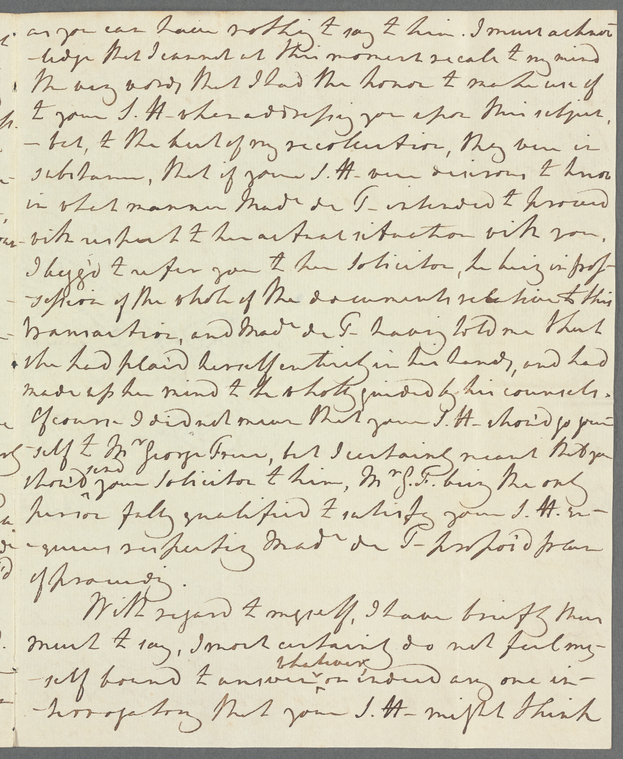 as you can have nothing to say to him. I must acknow-
-ledge that I cannot at this moment recale to my mind
the very words that I had the honor to make use of
to your S. H- when addressing you upon this subject,
- but, to the best of my recollection, they were in
substance, that if your S. H- were desirous to know
in what manner Madᵉ de T- intended to proceed
with respect to her actual situation with you,
I begg'd to refer you to her Solicitor, he being in pos-
-session of the whole of the documents relative to this
transaction, and Madᵉ de T- having told me that
she had placed herself entirely in his hands, and had
made up her mind to be wholly guided by his counsels.
Of course I did not mean that your S. H- should go your-
-self to Mʳ George Frere, but I certainly meant that you
should send your Solicitor to him, Mʳ G. F. being the only
person fully qualified to satisfy your S. H. en-
-quiries respecting Madᵉ de T- propos'd
of proceeding.
With regard to myself, I have briefly thus
much to say, I most certainly do not feel my-
-self bound to answer whatever, on indeed any one in-
-terrogatory that your S. H- might think